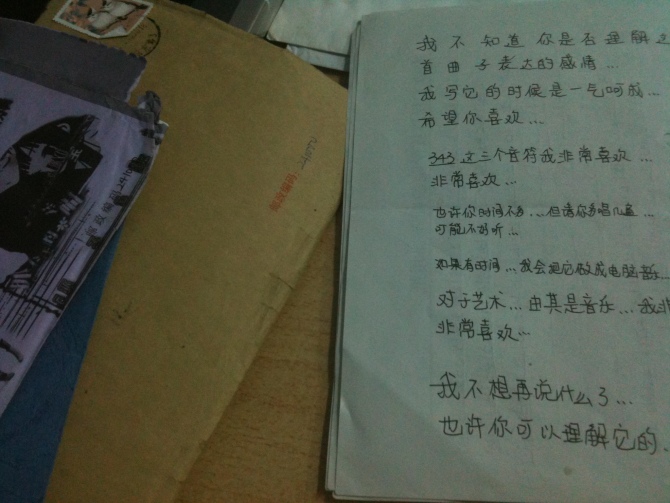 我不知道你是否理解这
首曲子表达的感情...
我写它的时候是一气呵成...
希望你喜欢...
343这三个音符我非常喜欢...
非常喜欢...
也许你时间不多...但请你多唱几遍...
可能不好听...
如果有时间...我会把它做成电脑音乐...
对于艺术...由其是音乐...我非
非常喜欢...
我不想再说什么了...
也许你可以理解它的..